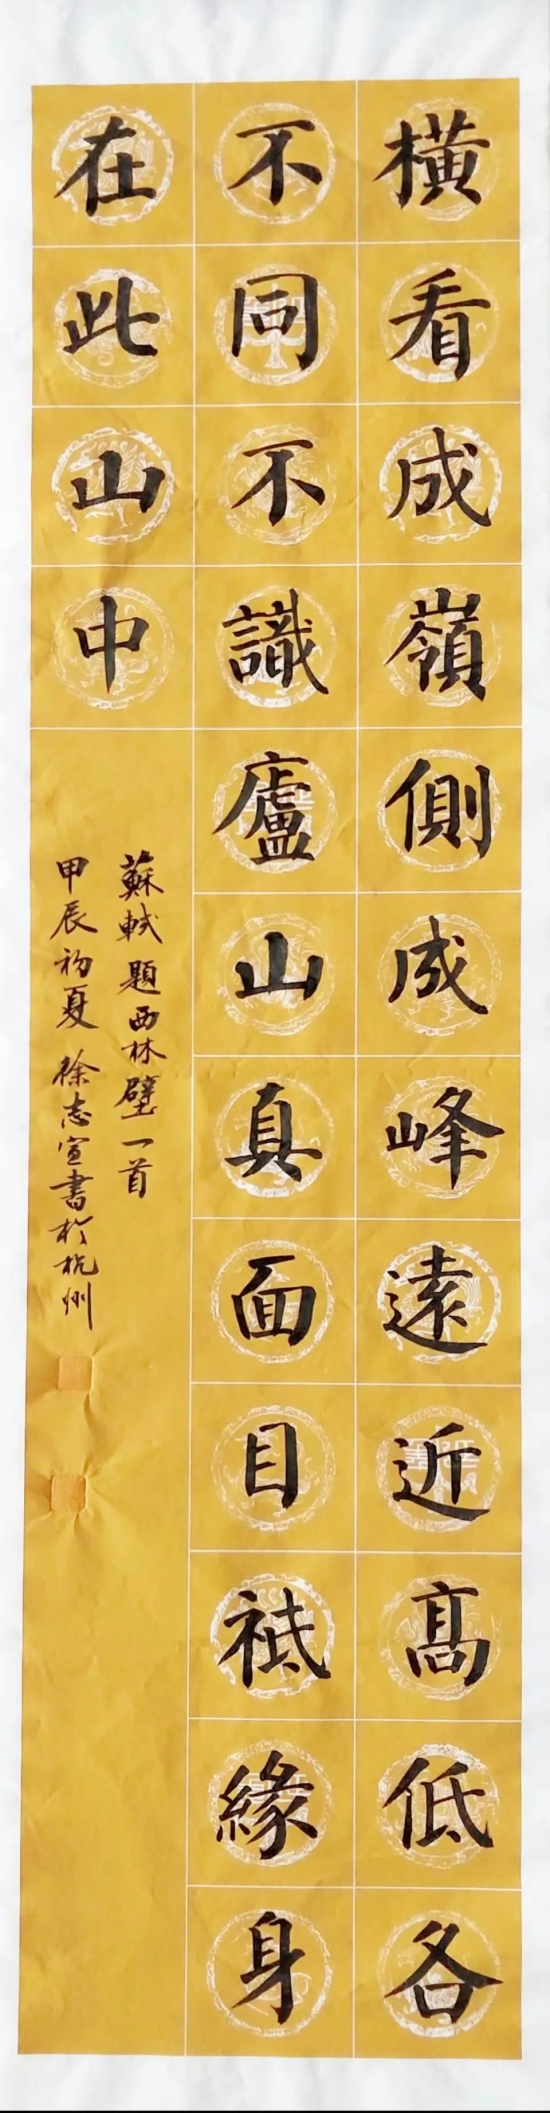 橫看成嶺側成峰遠近髙低各
不同不識廬山真面目祗緣身
在此山中
蘇軾題西林壁一首
甲辰初夏徐志宣書於杭州